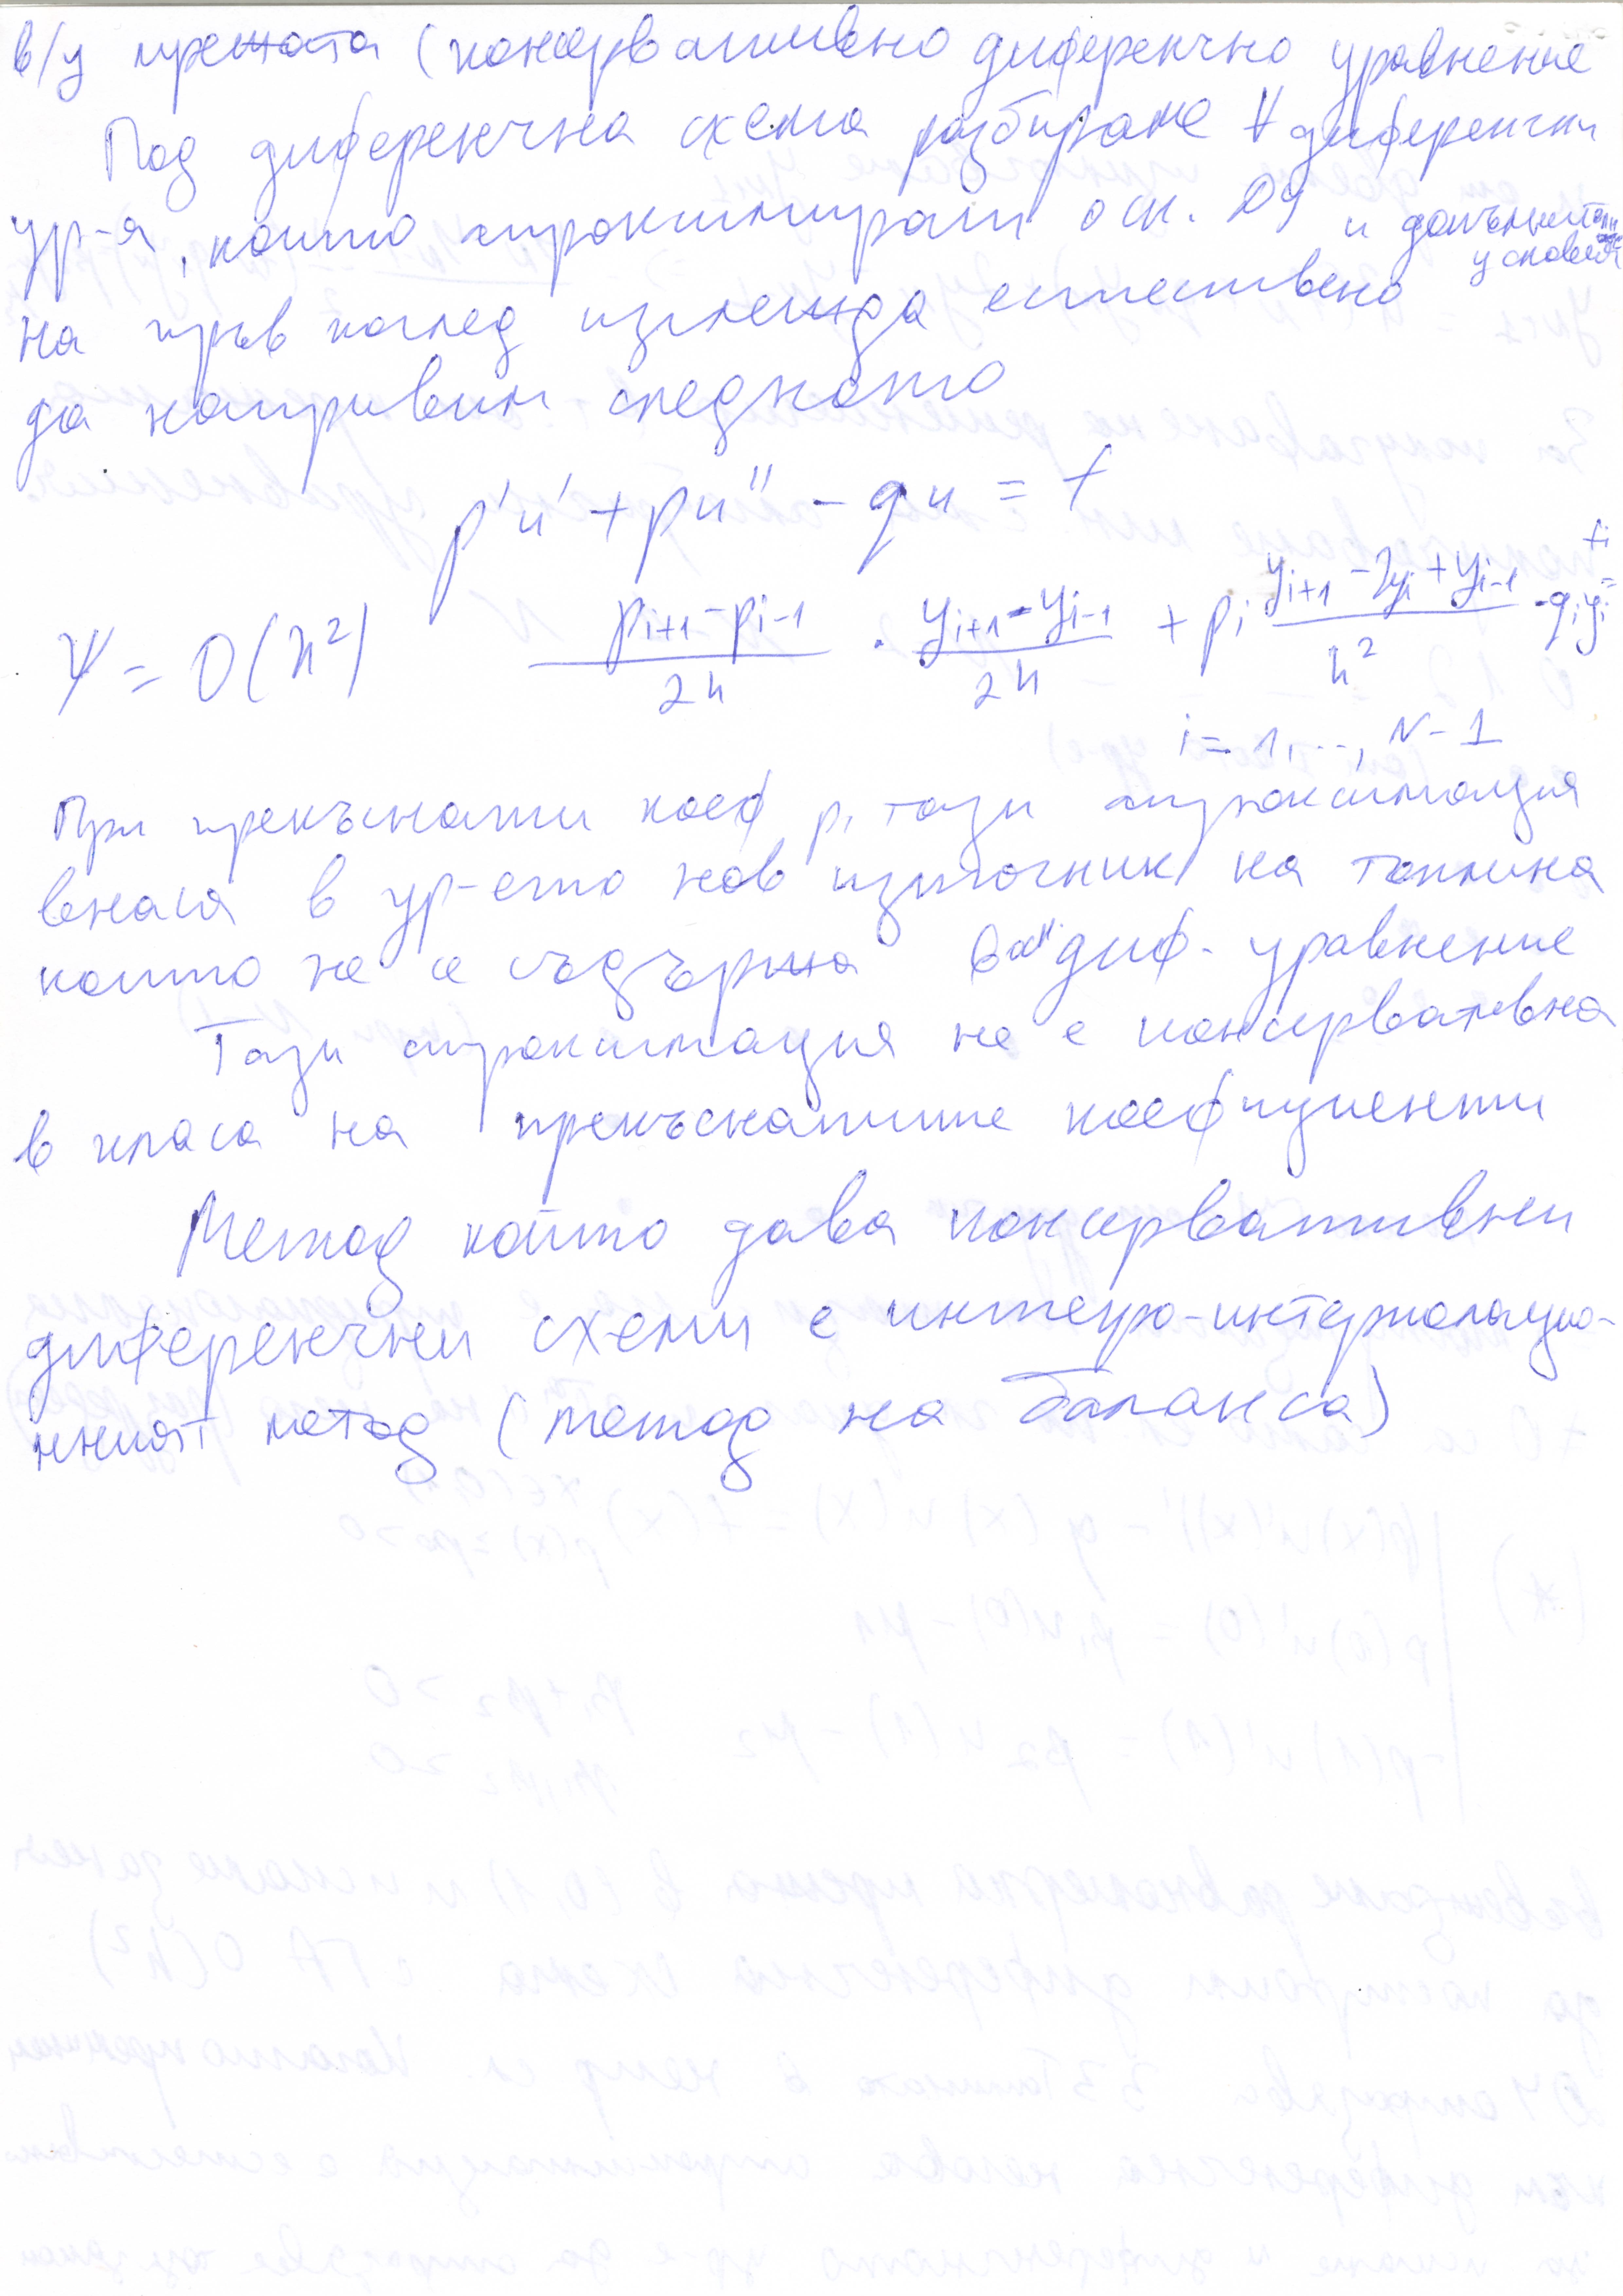 в/у мрежата (консервативно диференчно уравнение
Под диференчна схема разбираме ∀ диференчни
ур-я, които апроксимират осн. ДУ и допълнителни
условия
На пръв поглед изглежда естествено
да направим следното
p'u' + pu'' - qu = f
ψ = O(h²) (p_{i+1} - p_{i-1})/2h · (y_{i+1} - y_{i-1})/2h + p_i (y_{i+1} - 2y_i + y_{i-1})/h² - q_i y_i = f_i
i = 1, ..., N-1
При прекъснати коеф p, тази апроксимация
внася в ур-ето нов източник на топлина
които не се съдържа в осн. диф. уравнение
Тази апроксимация не е консервативна
в класа на прекъснатите коефициенти
Метод който дава консервативни
диференчни схеми е интегро-интерполацио-
нният метод (метод на баланса)